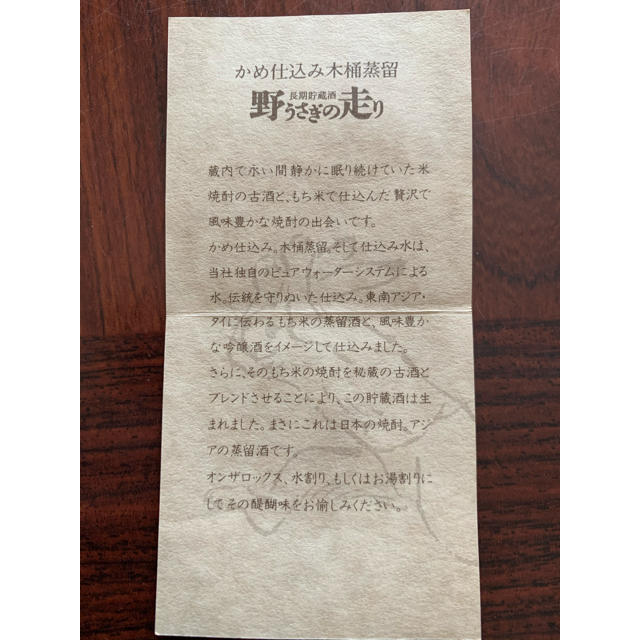 かめ仕込み木桶蒸留
長期貯蔵酒
野うさぎの走り
蔵内で永い間静かに眠り続けていた米
焼酎の古酒と、もち米で仕込んだ贅沢で
風味豊かな焼酎の出会いです。
かめ仕込み。木桶蒸留。そして仕込み水は、
当社独自のピュアウォーターシステムによる
水。伝統を守りぬいた仕込み。東南アジア・
タイに伝わるもち米の蒸留酒と、風味豊か
な吟醸酒をイメージして仕込みました。
さらに、そのもち米の焼酎を秘蔵の古酒と
ブレンドさせることにより、この貯蔵酒は生
まれました。まさにこれは日本の焼酎。アジ
アの蒸留酒です。
オンザロックス、水割り、もしくはお湯割りに
してその醍醐味をお愉しみください。